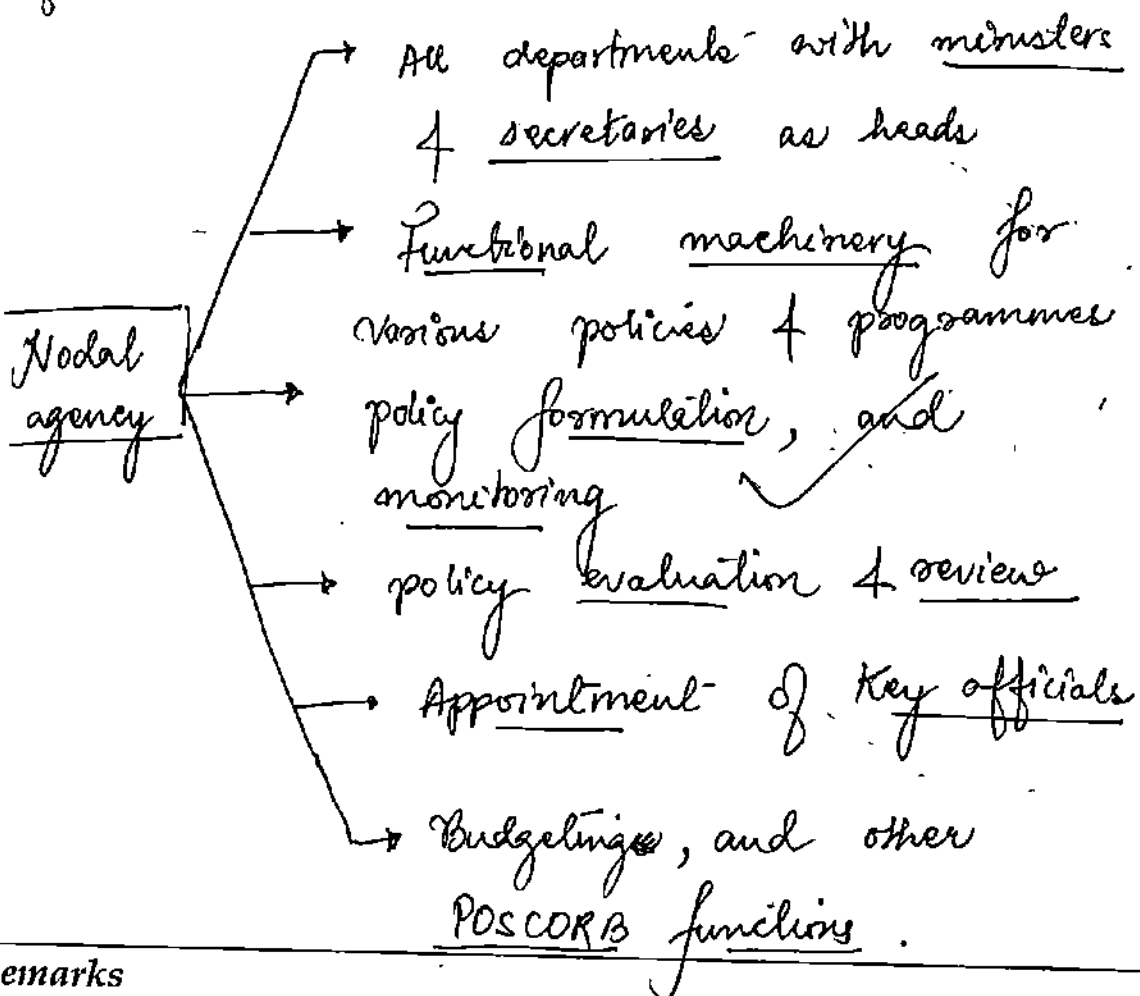 All departments with ministers
& secretaries as heads
Functional machinery for
various policies & programmes
Nodal
agency
policy formulation, and
monitoring
policy evaluation & review
Appointment of Key officials
Budgeting, and other
POSCORB functions.
emarks